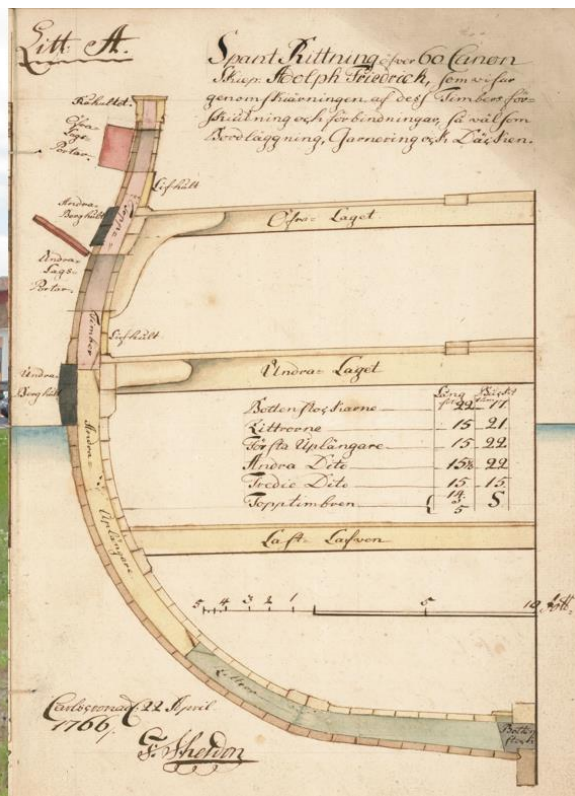 Litt. A.
Spant Rittning öfver 60 Canon
Skiep. Adolph Friedrich, som visar
genomskiärningen af dess Timbers för-
skiälning och förbindningar, så väl som
Bordläggning, Garnering och Däcken.
Råhultet.
Öfra
Lags
Portar.
Lifhült
Andra
Berghült
Toppe
Öfra- Laget
Undra-
Lags-
Portar.
Timber
Lifhült
Undra-
Berghült
Undra- Laget
Läng
Botten stockarne 22 17
Kittrorne 15 21
Första Uplängare 15 22
Andra Dito 15½ 22
Tredie Dito 15 15
Topptimbren { 14 S
3
5
Andra- Uplängare
Last- Lafven
5 4 3 2 1 5 10
Botten
stock
Carlscrona d. 22 April
1766,
F. Sheldon